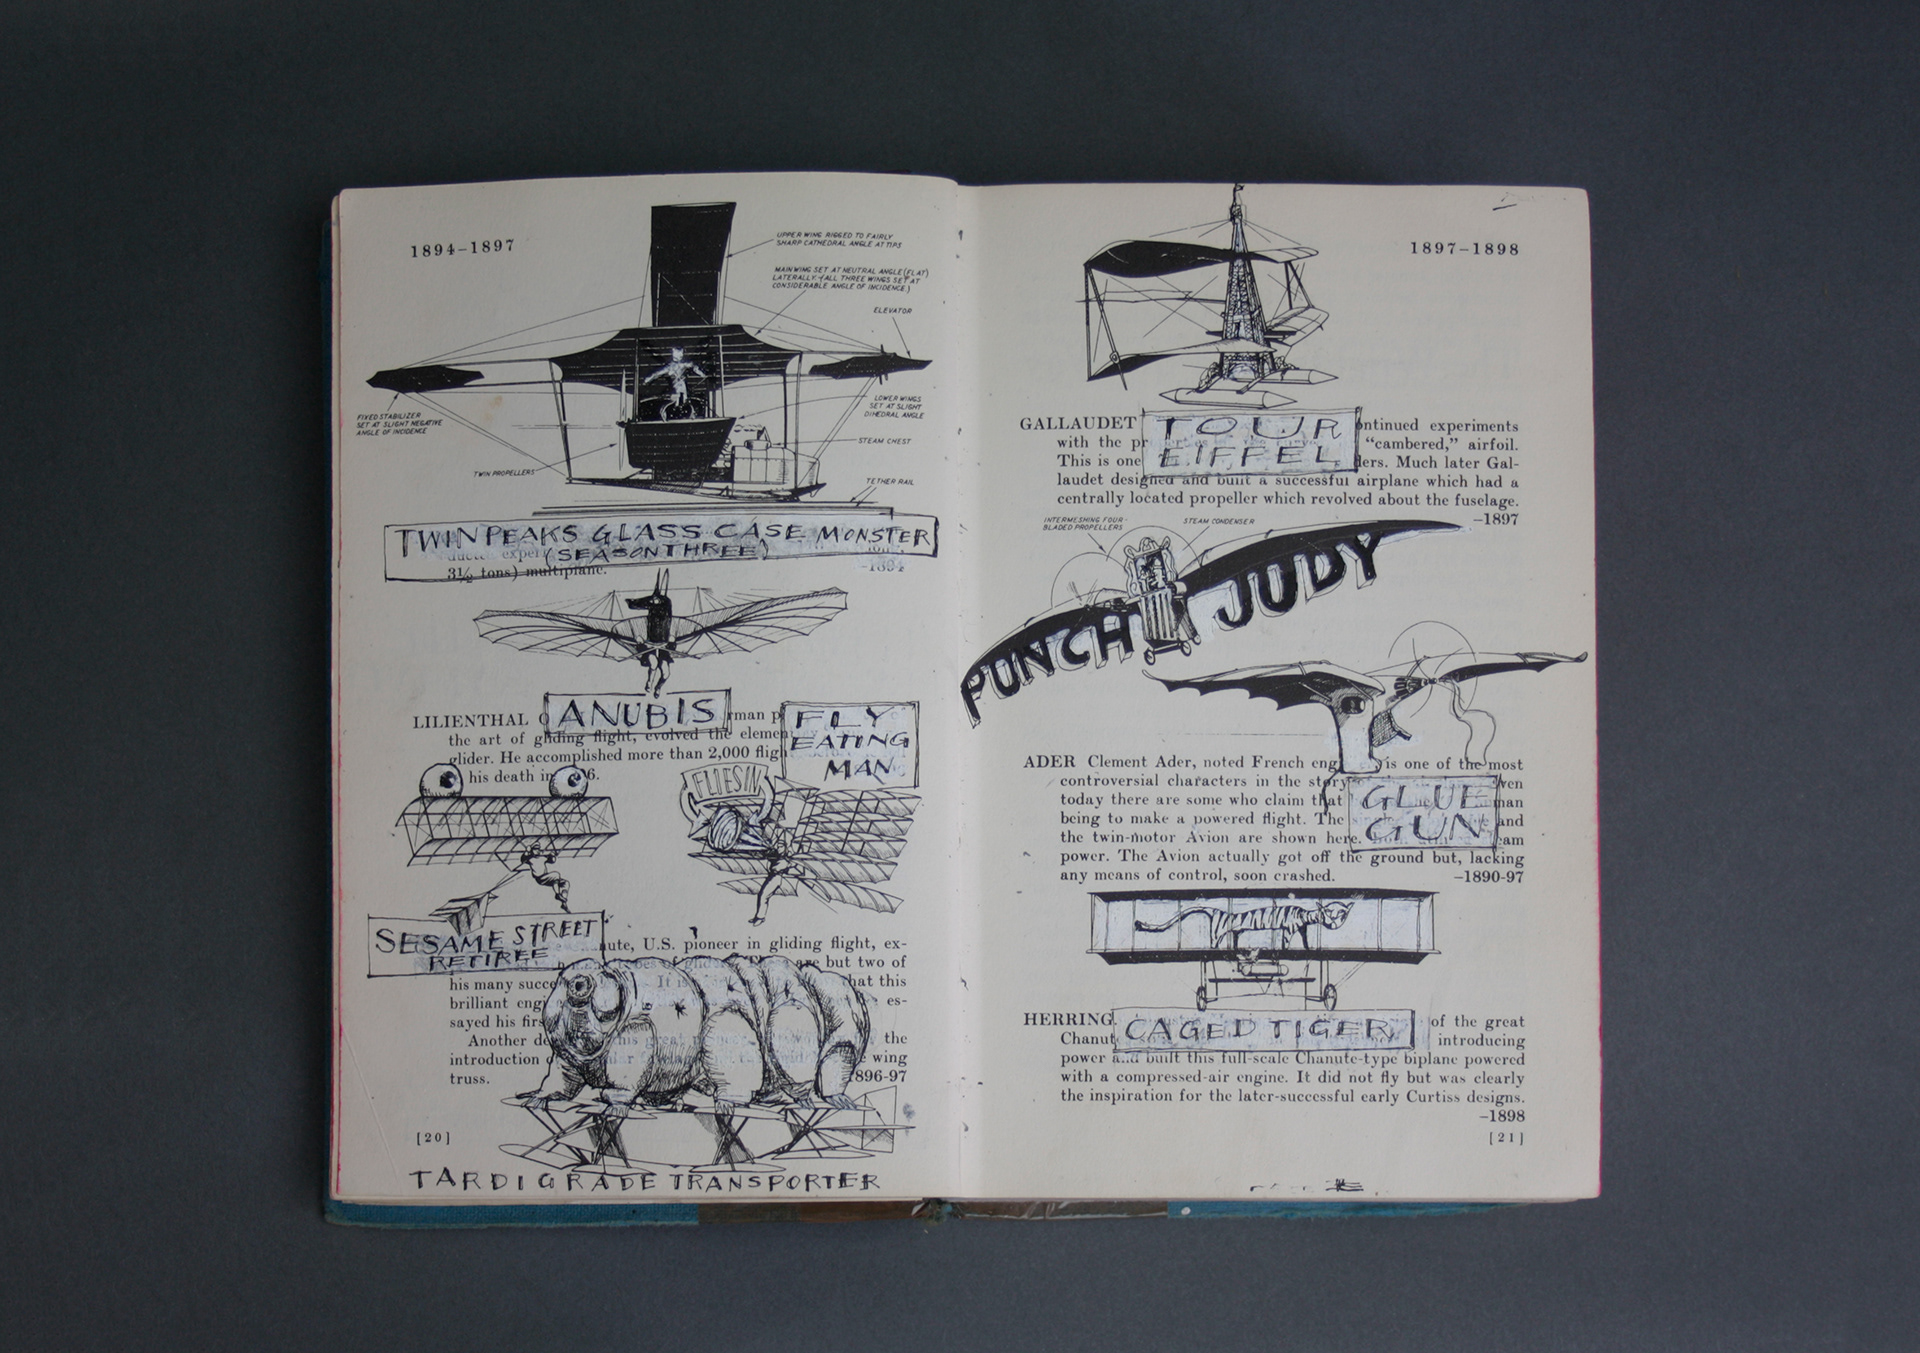 1894–1897
UPPER WING RIGGED TO FAIRLY
SHARP CATHEDRAL ANGLE AT TIPS
MAIN WING SET AT NEUTRAL ANGLE (FLAT)
LATERALLY–(ALL THREE WINGS SET AT
CONSIDERABLE ANGLE OF INCIDENCE.)
ELEVATOR
FIXED STABILIZER
SET AT SLIGHT NEGATIVE
ANGLE OF INCIDENCE
LOWER WINGS
SET AT SLIGHT
DIHEDRAL ANGLE
STEAM CHEST
TWIN PROPELLERS
TETHER RAIL
TWIN PEAKS GLASS CASE MONSTER
(SEASON THREE)
3½ tons) multiplane. –1894
ANUBIS
LILIENTHAL rman p
the art of gliding flight, evolved the elemen
glider. He accomplished more than 2,000 fligh
his death in 6.
FLY
EATING
MAN
FLIES IN
SESAME STREET
RETIREE
nute, U.S. pioneer in gliding flight, ex-
are but two of
his many succe It is hat this
brilliant engi es-
sayed his firs
Another de the
introduction wing
truss. 1896-97
[20]
TARDIGRADE TRANSPORTER
1897–1898
GALLAUDET ontinued experiments
with the pr "cambered," airfoil.
This is one ders. Much later Gal-
laudet designed and built a successful airplane which had a
centrally located propeller which revolved about the fuselage.
–1897
TOUR
EIFFEL
INTERMESHING FOUR-
BLADED PROPELLERS
STEAM CONDENSER
PUNCH JUDY
ADER Clement Ader, noted French eng is one of the most
controversial characters in the story ven
today there are some who claim that man
being to make a powered flight. The and
the twin-motor Avion are shown here. eam
power. The Avion actually got off the ground but, lacking
any means of control, soon crashed. –1890-97
GLUE
GUN
CAGED TIGER
HERRING of the great
Chanut introducing
power and built this full-scale Chanute-type biplane powered
with a compressed-air engine. It did not fly but was clearly
the inspiration for the later-successful early Curtiss designs.
–1898
[21]